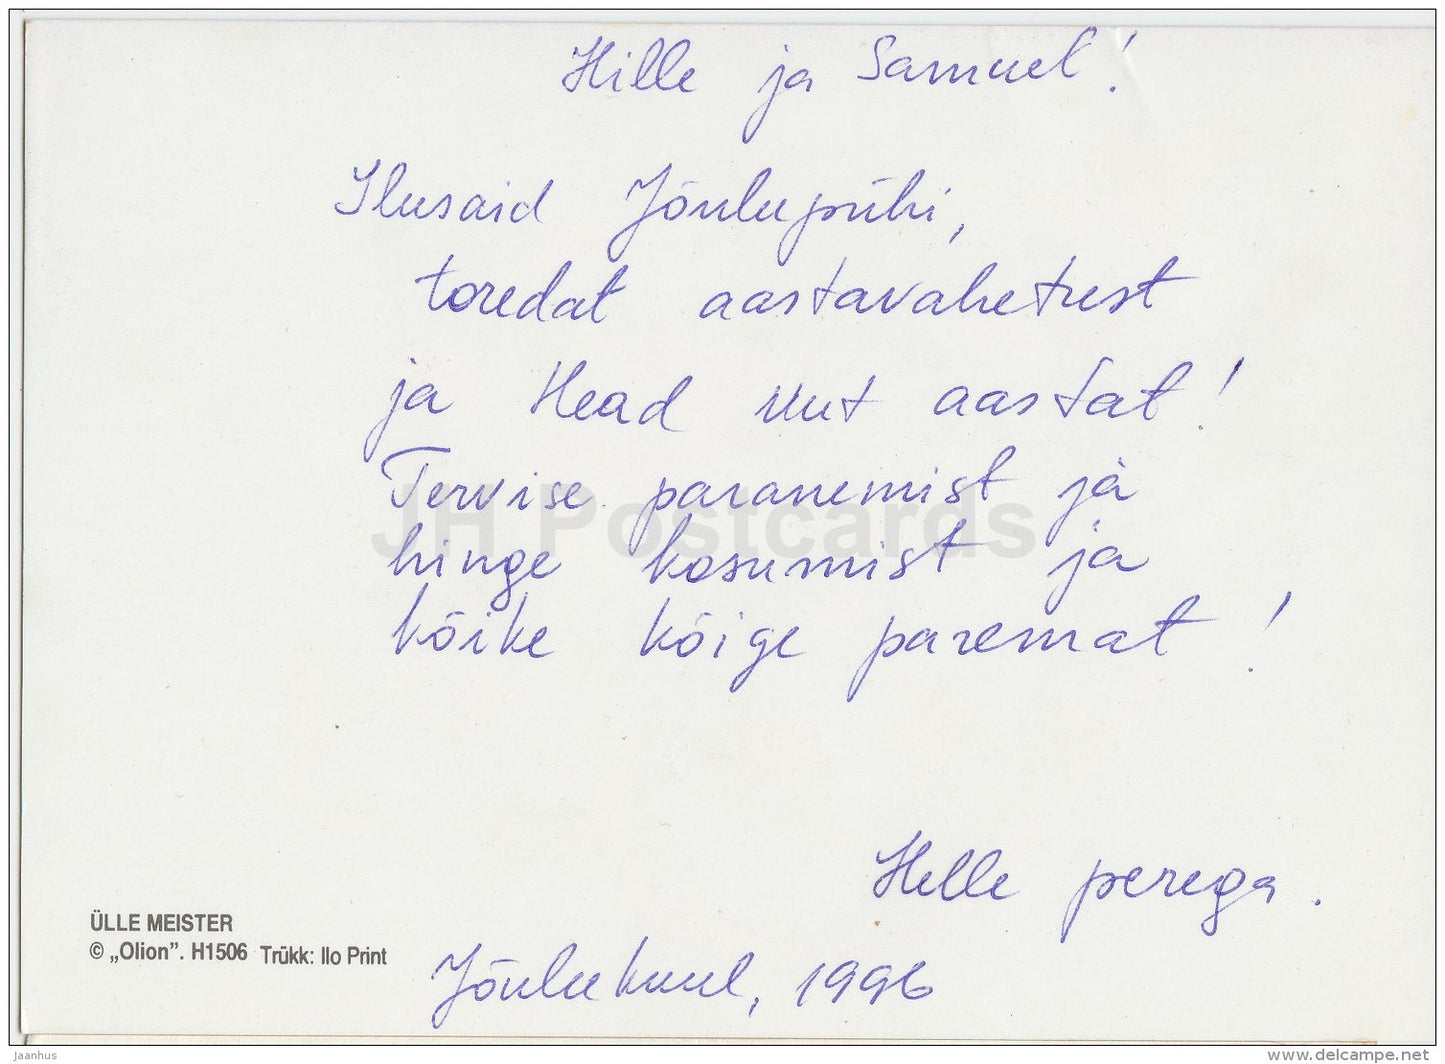 Hille ja Samuel!
Ilusaid Jõulupühi,
toredat aastavahetust
ja Head uut aastat!
Tervise paranemist ja
hinge kosumist ja
kõike kõige paremat!
Helle perega.
Jõulukuul, 1996
ÜLLE MEISTER
© „Olion”. H1506 Trükk: Ilo Print
JH Postcards
jaanhus
www.delcampe.net